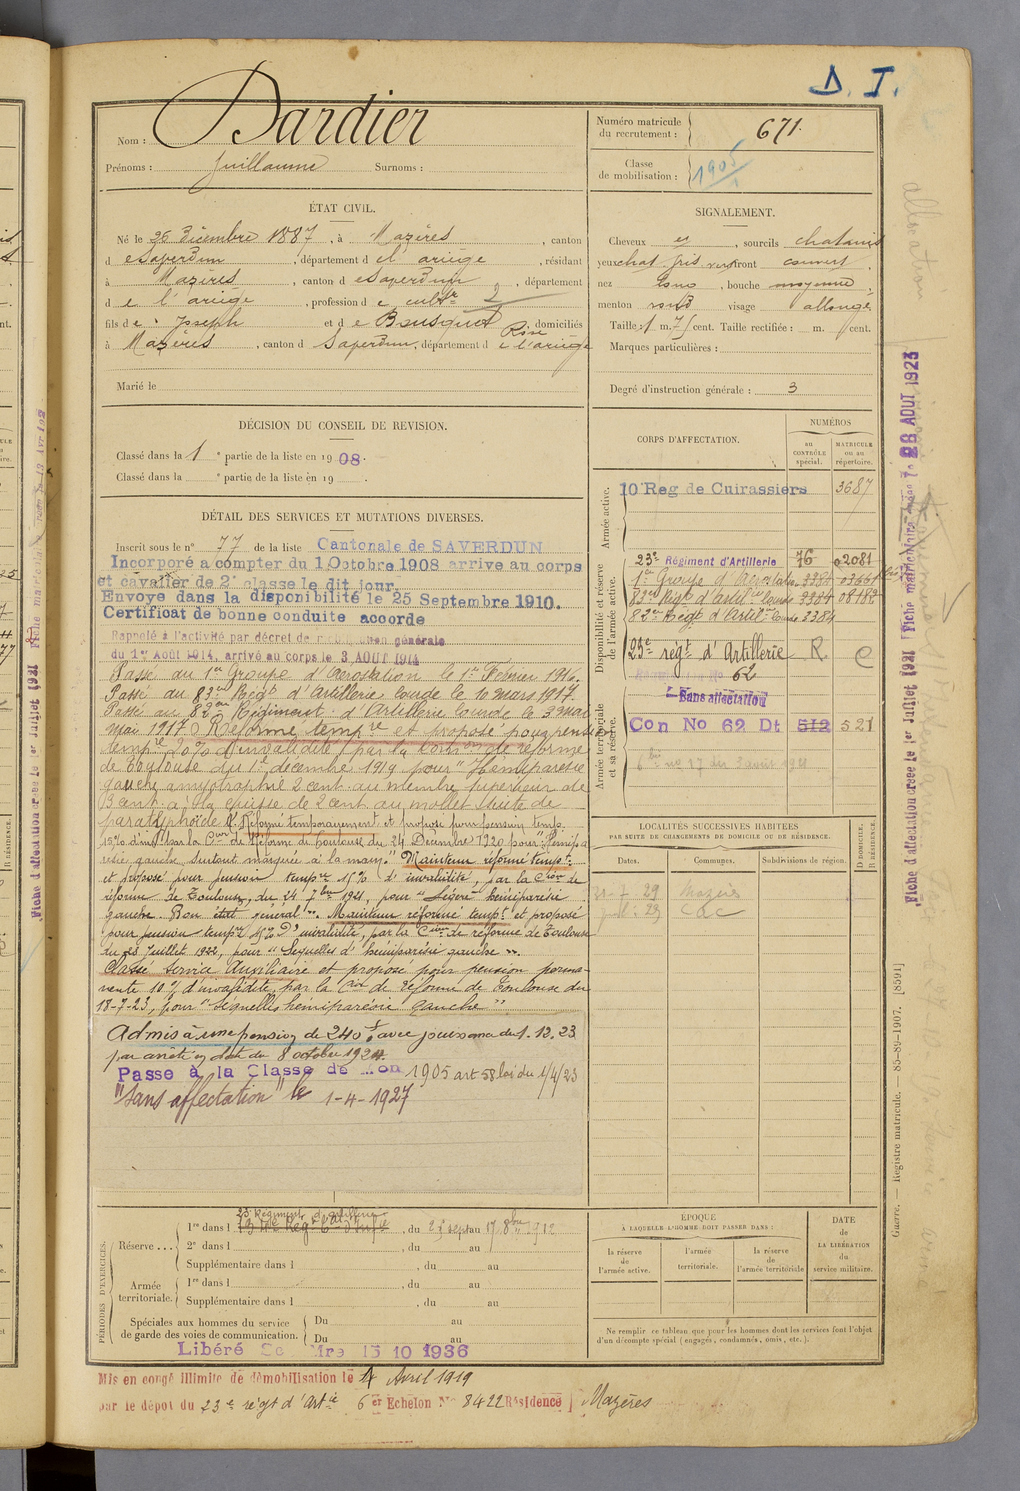 D. I.
Nom : Dardier
Prénoms : Guillaume Surnoms :
Numéro matricule du recrutement : 671.
Classe de mobilisation : 1905
ÉTAT CIVIL.
Né le 26 Décembre 1887, à Mazères, canton
d e Saverdun, département d e l'ariège, résidant
à Mazères, canton d e Saverdun, département
d e l'ariège, profession d e cultr 2
fils d e Joseph et d e Bousquet Rose, domiciliés
à Mazères, canton d Saverdun, département d e l'ariège
Marié le
SIGNALEMENT.
Cheveux et, sourcils chatains
yeux chat gris front couvert,
nez, bouche moyenne,
menton rond visage allongé
Taille : 1 m. 75 cent. Taille rectifiée : m. cent.
Marques particulières :
Degré d'instruction générale : 3
DÉCISION DU CONSEIL DE REVISION.
Classé dans la 1e partie de la liste en 1908.
Classé dans la e partie de la liste en 19
DÉTAIL DES SERVICES ET MUTATIONS DIVERSES.
Inscrit sous le n° 77 de la liste Cantonale de SAVERDUN
Incorporé a compter du 1 Octobre 1908 arrive au corps
et cavalier de 2e classe le dit jour.
Envoye dans la disponibilité le 25 Septembre 1910.
Certificat de bonne conduite accorde
Rappelé à l'activité par décret de mobilisation générale
du 1er Août 1914, arrivé au corps le 3 AOUT 1914
Passé au 1er Groupe d'Aérostation le 1er Février 1916.
Passé au 83me Régt d'Artillerie lourde le 10 mars 1917.
Passé au 82me Régiment d'Artillerie lourde le 3 mai
mai 1917. Réformé tempre et proposé pour pens
tempre d'invalidité, par la comon de réforme
de Toulouse du 1er décembre 1919 pour "Hémiparésie
gauche amyotrophie 2 cent. au membre supérieur de
3 cent. à la cuisse de 2 cent. au mollet suite de
paratyphoïde". Réformé temporairement et proposé pour pension temp.
15% d'inv. par la Cion de Réforme de Toulouse du 24 Décembre 1920 pour "Hémipa
résie gauche, surtout marquée à la main." Maintenu réformé tempt
et proposé pour pension tempre 15% d'invalidité, par la Cion de
réforme de Toulouse, du 24 7bre 1921, pour "Légère hémiparésie
gauche. Bon état général". Maintenu réformé tempt et proposé
pour pension tempre 15% d'invalidité, par la Cion de réforme de Toulouse
du 28 Juillet 1922, pour "Sequelles d'hémiparésie gauche".
Classé Service Auxiliaire et proposé pour pension perma-
nente 10% d'invalidité, par la Cion de réforme de Toulouse du
18-7-23, pour "Séquelles hémiparésie gauche"
Admis à une pension de 240 f avec jouissance du 1.12.23
par arrêté en date du 8 octobre 1924.
Passe à la Classe de Mon 1905 art 58 loi du 1/4/23
"Sans affectation" le 1-4-1927
CORPS D'AFFECTATION.
NUMÉROS
au CONTRÔLE spécial.
MATRICULE ou au répertoire.
Armée active.
10 Reg de Cuirassiers 3687
Disponibilité et réserve de l'armée active.
23e Régiment d'Artillerie 76 02081
1er Groupe d'Aérostation 3384
83me Régt d'artie lourde 3384 08182
82me Régt d'Artie lourde 3384
23e régt d'Artillerie R C
No 62
Armée territoriale et sa réserve.
Sans affectation
Con No 62 Dt 512 521
LOCALITÉS SUCCESSIVES HABITÉES
PAR SUITE DE CHANGEMENTS DE DOMICILE OU DE RÉSIDENCE.
Dates. Communes. Subdivisions de région. D DOMICILE. R RÉSIDENCE.
Mazères
PÉRIODES D'EXERCICES.
Réserve . . . 1re dans l 23e Régiment d'Artillerie, du 25 sept au 17 8bre 1912
2e dans l, du au
Supplémentaire dans l, du au
Armée territoriale. 1re dans l, du au
Supplémentaire dans l, du au
Spéciales aux hommes du service de garde des voies de communication. Du au
Du au
Libéré Sce Mre 15 10 1936
ÉPOQUE
À LAQUELLE L'HOMME DOIT PASSER DANS :
la réserve de l'armée active.
l'armée territoriale.
la réserve de l'armée territoriale
DATE de LA LIBÉRATION du service militaire.
Ne remplir ce tableau que pour les hommes dont les services font l'objet
d'un décompte spécial (engagés, condamnés, omis, etc.).
Mis en congé illimité de démobilisation le 4 Avril 1919
par le dépôt du 23e régt d'Artie 6er Echelon No 8422 Résidence Mazères
Guerre. — Registre matricule. — 85-89-1907. [8591]
Fiche d'affectation créée le 1er Juillet 1921 Fiche matriculaire créée le 28 AOUT 1923